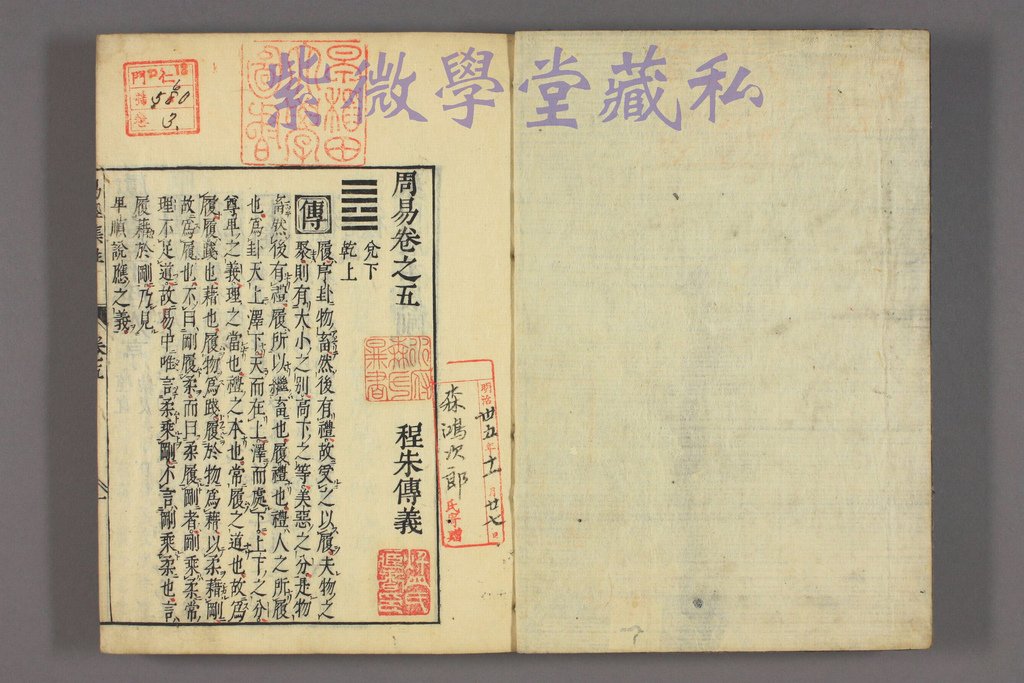 紫微學堂藏私
門 仁 12
號 580
卷 3.
周易卷之五
程朱傳義
兌下
乾上
傳
履序卦物畜然後有禮故受之以履夫物之
聚則有大小之別高下之等美惡之分是物
畜然後有禮履所以繼畜也履禮也禮人之所履
也爲卦天上澤下天而在上澤而處下上下之分
尊卑之義理之當也禮之本也常履之道也故爲
履履踐也藉也履物爲踐履於物爲藉以柔藉剛
故爲履也不曰剛履柔而曰柔履剛者剛乘柔常
理不足道故易中唯言柔乘剛不言剛乘柔也言
履藉於剛乃見
卑順說應之義
明治卅五年十一月廿七日
森鴻次郎
氏寄贈